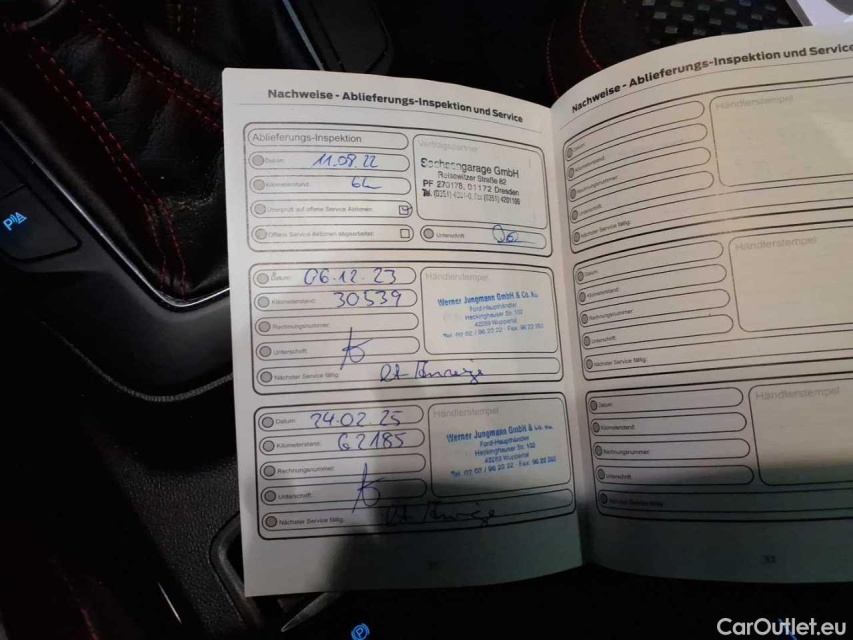 Nachweise - Ablieferungs-Inspektion und Service
Ablieferungs-Inspektion
Datum: 11.08.22
Kilometerstand:
Überprüft auf offene Service Aktionen:
Offene Service Aktionen abgearbeitet:
Vertragspartner
Sachsengarage GmbH
Reisewitzer Straße 82
PF 270178, 01172 Dresden
Unterschrift:
Datum: 06.12.23
Kilometerstand: 30539
Rechnungsnummer:
Unterschrift:
Nächster Service fällig:
Händlerstempel
Werner Jungmann GmbH & Co. KG
Ford-Haupthändler
Heckinghauser Str. 102
42289 Wuppertal
Datum: 24.02.25
Kilometerstand: 62185
Rechnungsnummer:
Unterschrift:
Nächster Service fällig:
Händlerstempel
Werner Jungmann GmbH & Co. KG
Ford-Haupthändler
Heckinghauser Str. 102
42289 Wuppertal
Nachweise - Ablieferungs-Inspektion und Service
Datum:
Kilometerstand:
Rechnungsnummer:
Unterschrift:
Nächster Service fällig:
Händlerstempel
Datum:
Kilometerstand:
Rechnungsnummer:
Unterschrift:
Nächster Service fällig:
Händlerstempel
Datum:
Kilometerstand:
Rechnungsnummer:
Unterschrift:
Nächster Service fällig:
Händlerstempel
CarOutlet.eu